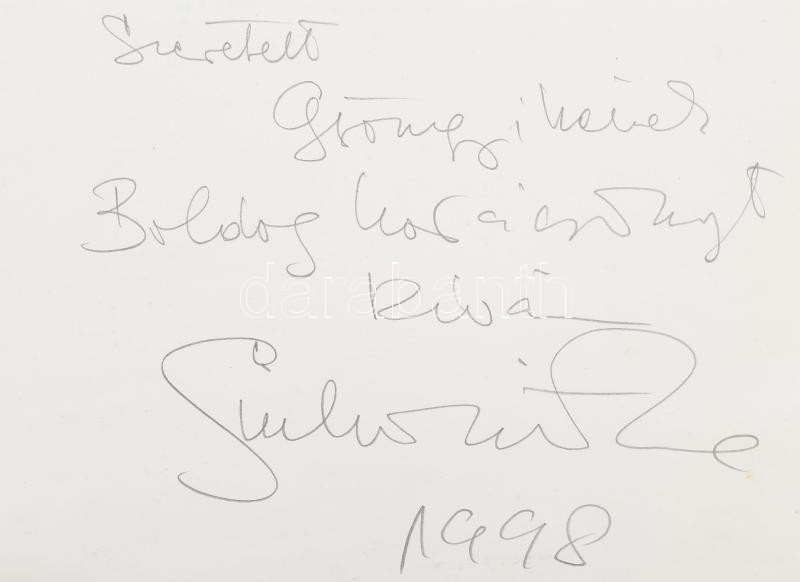 Szeretett
Gyöngyikének
Boldog karácsonyt
kíván
darabanth
1998